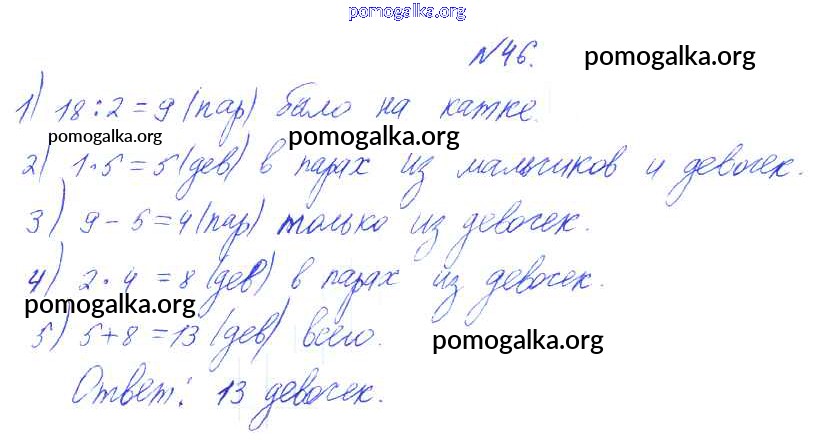 pomogalka.org
№46. pomogalka.org
1) 18:2=9 (пар) было на катке.
pomogalka.org pomogalka.org
2) 1·5=5 (дев) в парах из мальчиков и девочек.
3) 9-5=4 (пар) только из девочек.
4) 2·4=8 (дев) в парах из девочек.
pomogalka.org
5) 5+8=13 (дев) всего.
pomogalka.org
Ответ: 13 девочек.